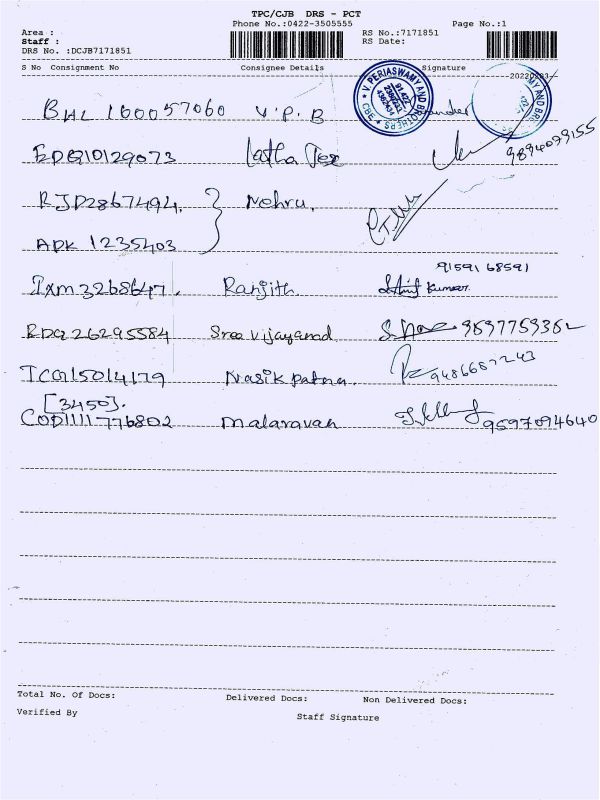 TPC/CJB DRS - PCT
Phone No.:0422-3505555 Page No.:1
Area :
Staff :
RS No.:7171851
DRS No. :DCJB7171851
RS Date:
S No Consignment No Consignee Details Signature
20220203
V. PERIASWAMY AND BROTHERS ★ CBE ★
MY AND BRO
BHL 100057060 V.P.B
EDQ10129073 Latha Tex 9894099155
RJD2867494. Nehru.
ADK 1235403
91591 68591
IXM3268647. Ranjith. Kumar
RDQ26295584 Sree Vijayanand
TCQ15014179 Nasik patna. 9486687243
[3450].
COD1111776802 Malaravan 9597094640
Total No. Of Docs: Delivered Docs: Non Delivered Docs:
Verified By
Staff Signature